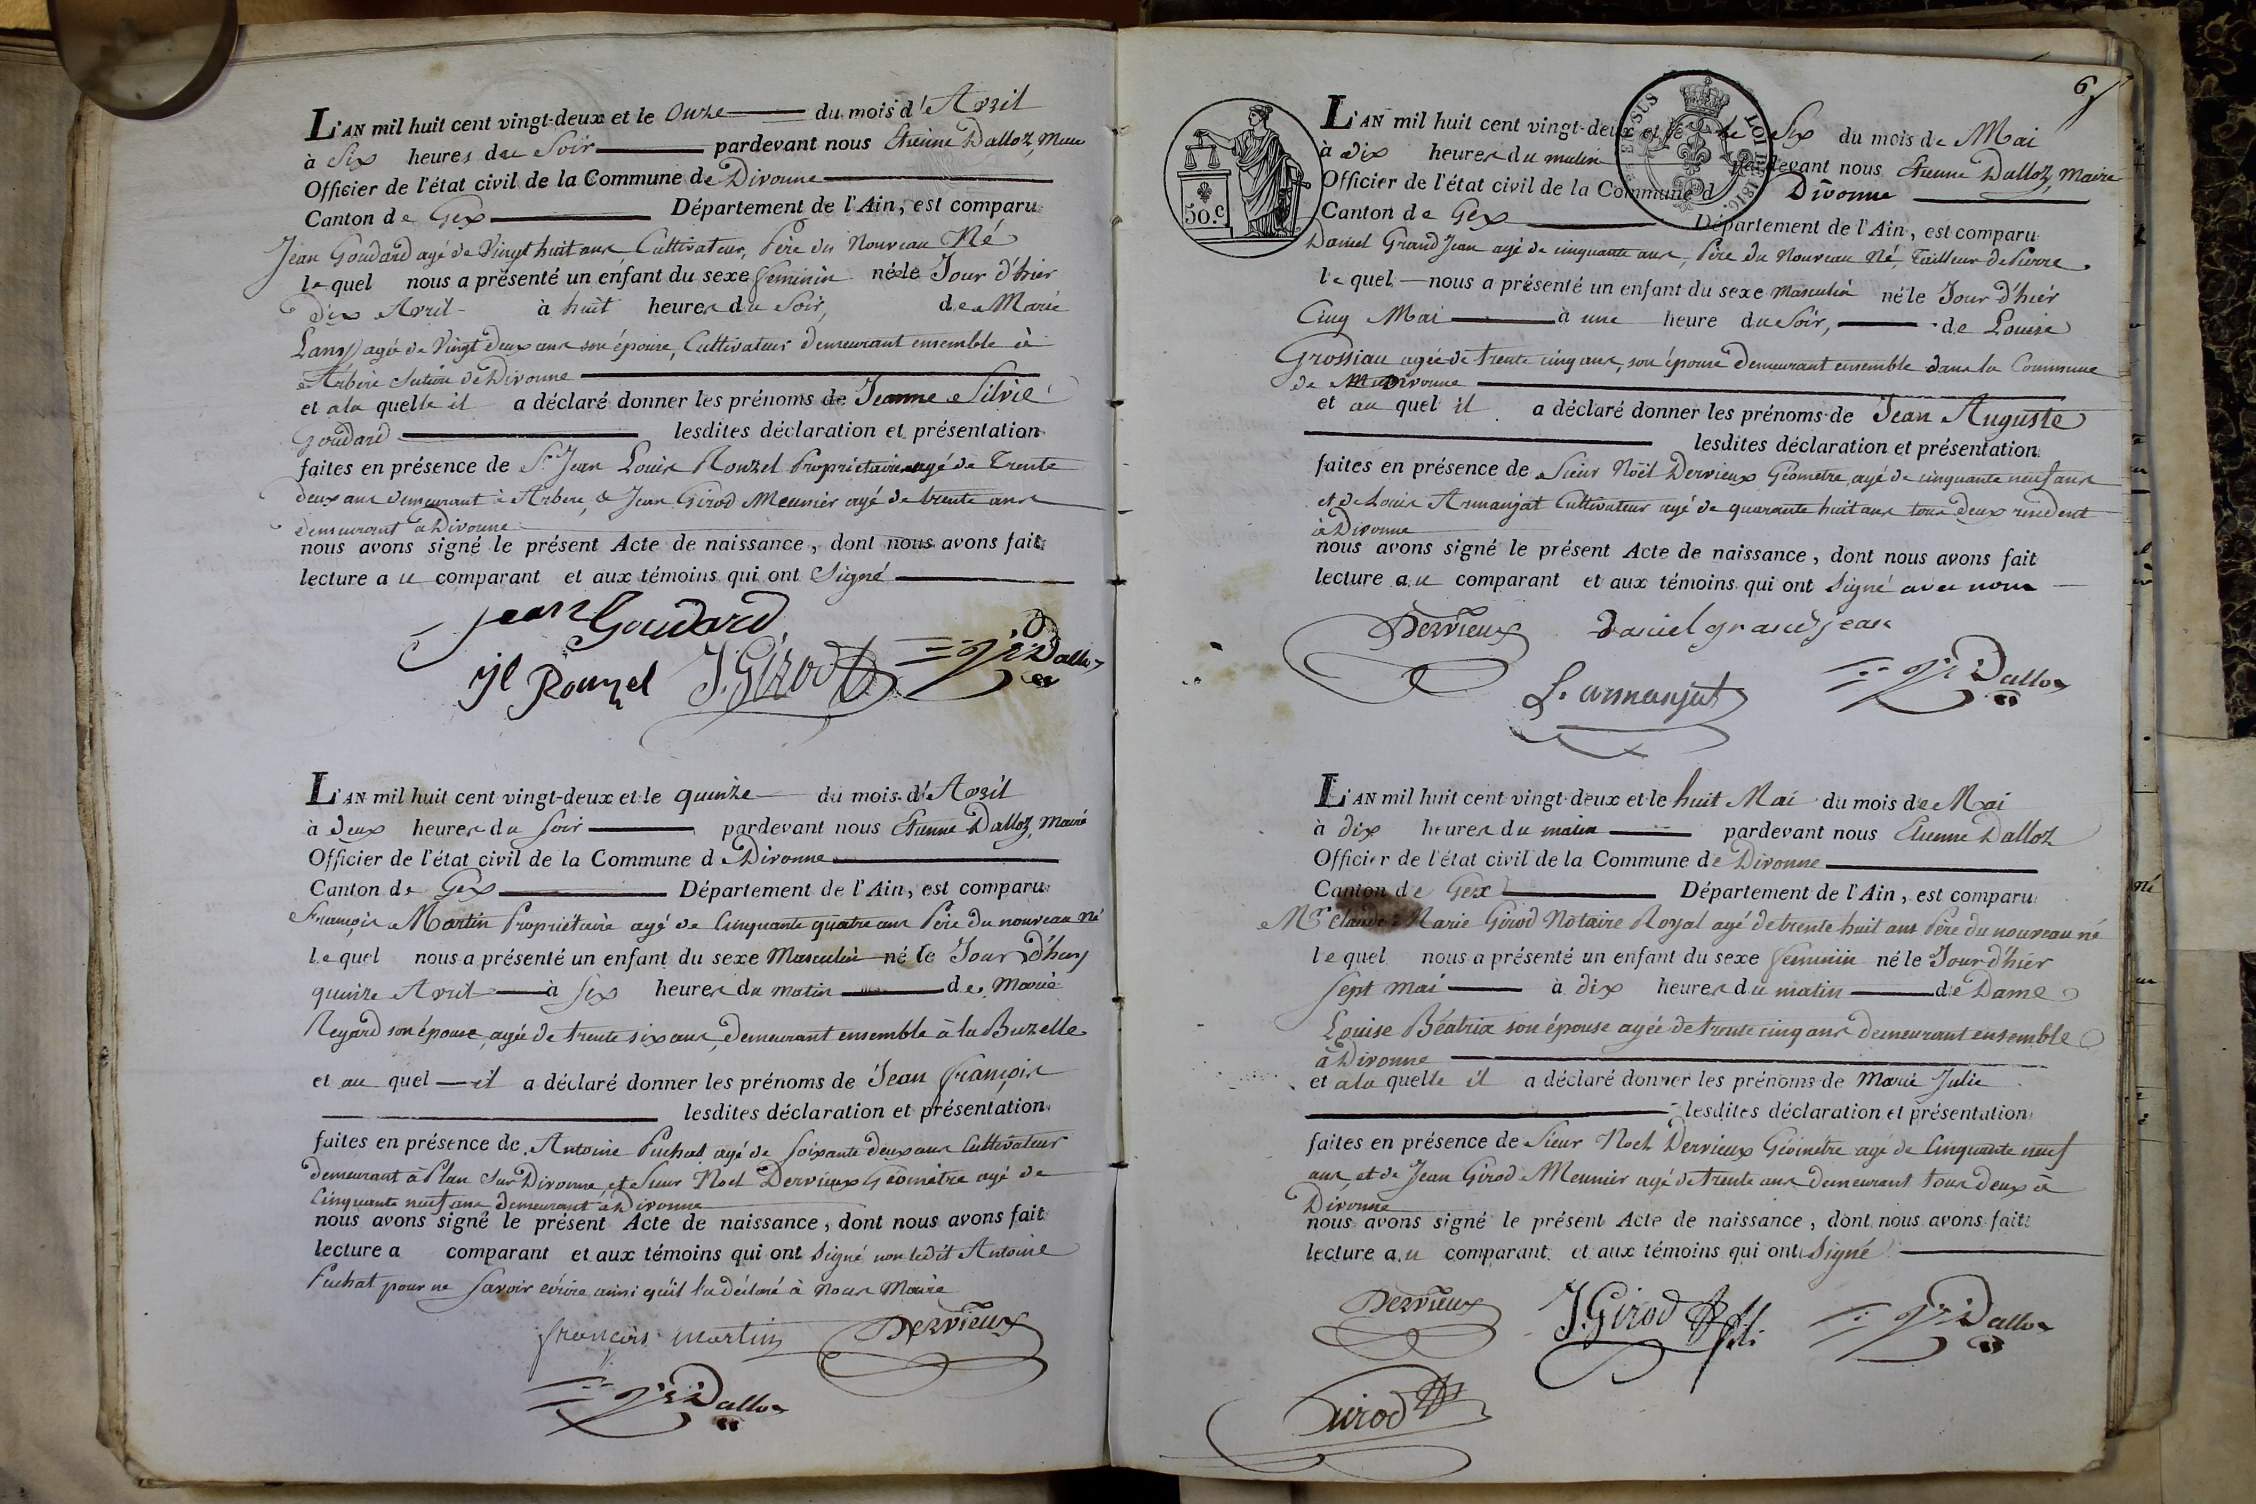 L'AN mil huit cent vingt-deux et le Onze du mois d'Avril
à Six heures du Soir pardevant nous Etienne Dalloz, Maire
Officier de l'état civil de la Commune de Divonne
Canton de Gex Département de l'Ain, est comparu
Jean Goudard agé de Vingt huit ans, Cultivateur, Père du Nouveau Né
lequel nous a présenté un enfant du sexe féminin né le Jour d'hier
dix Avril à huit heures du Soir, de Marie
agée de Vingt deux ans son épouse, Cultivateur demeurant ensemble à
Arbère Section de Divonne
et a la quelle il a déclaré donner les prénoms de Jeanne Silvie
Goudard lesdites déclaration et présentation
faites en présence de Sr Jean Louis Rouzel Propriétaire agé de Trente
deux ans demeurant à Arbere, & Jean Girod Meunier agé de trente ans
demeurant à Divonne
nous avons signé le présent Acte de naissance, dont nous avons fait
lecture au comparant et aux témoins qui ont Signé
Jean Goudard
Jl Rouzel J. Girod Dalloz
L'AN mil huit cent vingt-deux et le quinze du mois d'Avril
à deux heures du soir pardevant nous Etienne Dalloz, Maire
Officier de l'état civil de la Commune de Divonne
Canton de Gex Département de l'Ain, est comparu
François Martin Propriétaire agé de Cinquante quatre ans Père du nouveau né
lequel nous a présenté un enfant du sexe Masculin né le Jour d'huy
quinze Avril à six heures du matin de Marie
Regard son épouse, agée de trente six ans, demeurant ensemble à la Buzelle
et au quel il a déclaré donner les prénoms de Jean François
lesdites déclaration et présentation
faites en présence de Antoine Puchat agé de Soixante deux ans Cultivateur
demeurant à Plan Sur Divonne, et Sieur Noel Dervieux Géomètre agé de
Cinquante neuf ans demeurant à Divonne
nous avons signé le présent Acte de naissance, dont nous avons fait
lecture a comparant et aux témoins qui ont Signé non ledit Antoine
Puchat pour ne Savoir écrire ainsi qu'il l'a déclaré à Nous Maire
françois martin Dervieux
Dalloz
6
50.c
LOI DE 1816.
L'AN mil huit cent vingt-deux et le Six du mois de Mai
à dix heures du matin pardevant nous Etienne Dalloz, Maire
Officier de l'état civil de la Commune d Divonne
Canton de Gex Département de l'Ain, est comparu
Daniel Grand Jean agé de cinquante ans, Père du Nouveau Né, Tailleur de Pierre
lequel nous a présenté un enfant du sexe Masculin né le Jour d'hier
Cinq Mai à une heure du Soir, de Louise
Grossiau agée de trente cinq ans, son épouse demeurant ensemble dans la Commune
de Divonne
et au quel il a déclaré donner les prénoms de Jean Auguste
lesdites déclaration et présentation
faites en présence de Sieur Noël Dervieux Géometre agé de cinquante neuf ans
et de Louis Armanjat Cultivateur agé de quarante huit ans tous deux résident
à Divonne
nous avons signé le présent Acte de naissance, dont nous avons fait
lecture au comparant et aux témoins qui ont Signé avec nous
Dervieux daniel grandjean
L. armanjat Dalloz
L'AN mil huit cent vingt-deux et le huit Mai du mois de Mai
à dix heures du matin pardevant nous Etienne Dalloz
Officier de l'état civil de la Commune de Divonne
Canton de Gex Département de l'Ain, est comparu
Mr Claude Marie Girod Notaire Royal agé de trente huit ans Père du nouveau né
lequel nous a présenté un enfant du sexe féminin né le Jour d'hier
Sept mai à dix heures du matin de Dame
Louise Béatrix son épouse agée de trente cinq ans demeurant ensemble
à Divonne
et a la quelle il a déclaré donner les prénoms de Marie Julie
lesdites déclaration et présentation
faites en présence de Sieur Noel Dervieux Géomètre agé de Cinquante neuf
ans, et de Jean Girod Meunier agé de trente ans demeurant tous deux à
Divonne
nous avons signé le présent Acte de naissance, dont nous avons fait
lecture au comparant et aux témoins qui ont Signé
Dervieux J. Girod Dalloz
Girod